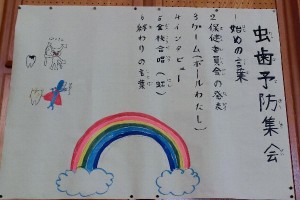 虫歯予防集会
1 始めの言葉
2 保健委員会の発表
3 ゲーム(ボールわたし)
4 インタビュー
5 全校合唱(虹)
6 終わりの言葉